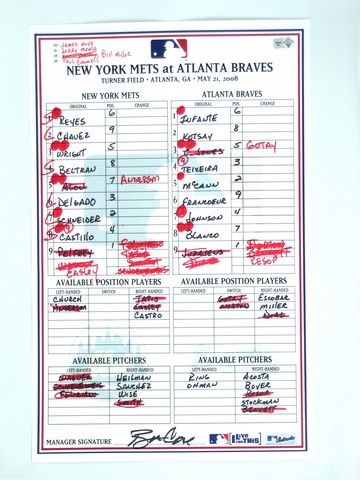 JAMES HOYE
Bill Miller
NEW YORK METS at ATLANTA BRAVES
TURNER FIELD • ATLANTA, GA • MAY 21, 2008
NEW YORK METS
ORIGINAL POS. CHANGE
REYES 6
CHAVEZ 9
WRIGHT 5
BELTRAN 8
ALOU 7 ANDERSON
DELGADO 3
SCHNEIDER 2
CASTILLO 4
PELFREY 1
EASLEY
ATLANTA BRAVES
ORIGINAL POS. CHANGE
INFANTE 6
KOTSAY 8
C. JONES 5 GOTAY
TEIXEIRA 3
MCCANN 2
FRANCOEUR 9
JOHNSON 4
BLANCO 7
JURRJENS 1
RESOP
AVAILABLE POSITION PLAYERS
LEFT-HANDED SWITCH RIGHT-HANDED
CHURCH TATIS
ANDERSON EASLEY
CASTRO
AVAILABLE POSITION PLAYERS
LEFT-HANDED SWITCH RIGHT-HANDED
GOTAY ESCOBAR
NORTON MILLER
DIAZ
AVAILABLE PITCHERS
LEFT-HANDED RIGHT-HANDED
WAGNER HEILMAN
SCHOENEWEIS SANCHEZ
FELICIANO WISE
SMITH
AVAILABLE PITCHERS
LEFT-HANDED RIGHT-HANDED
RING ACOSTA
OHMAN BOYER
RESOP
STOCKMAN
BENNETT
MANAGER SIGNATURE
I Live for THIS